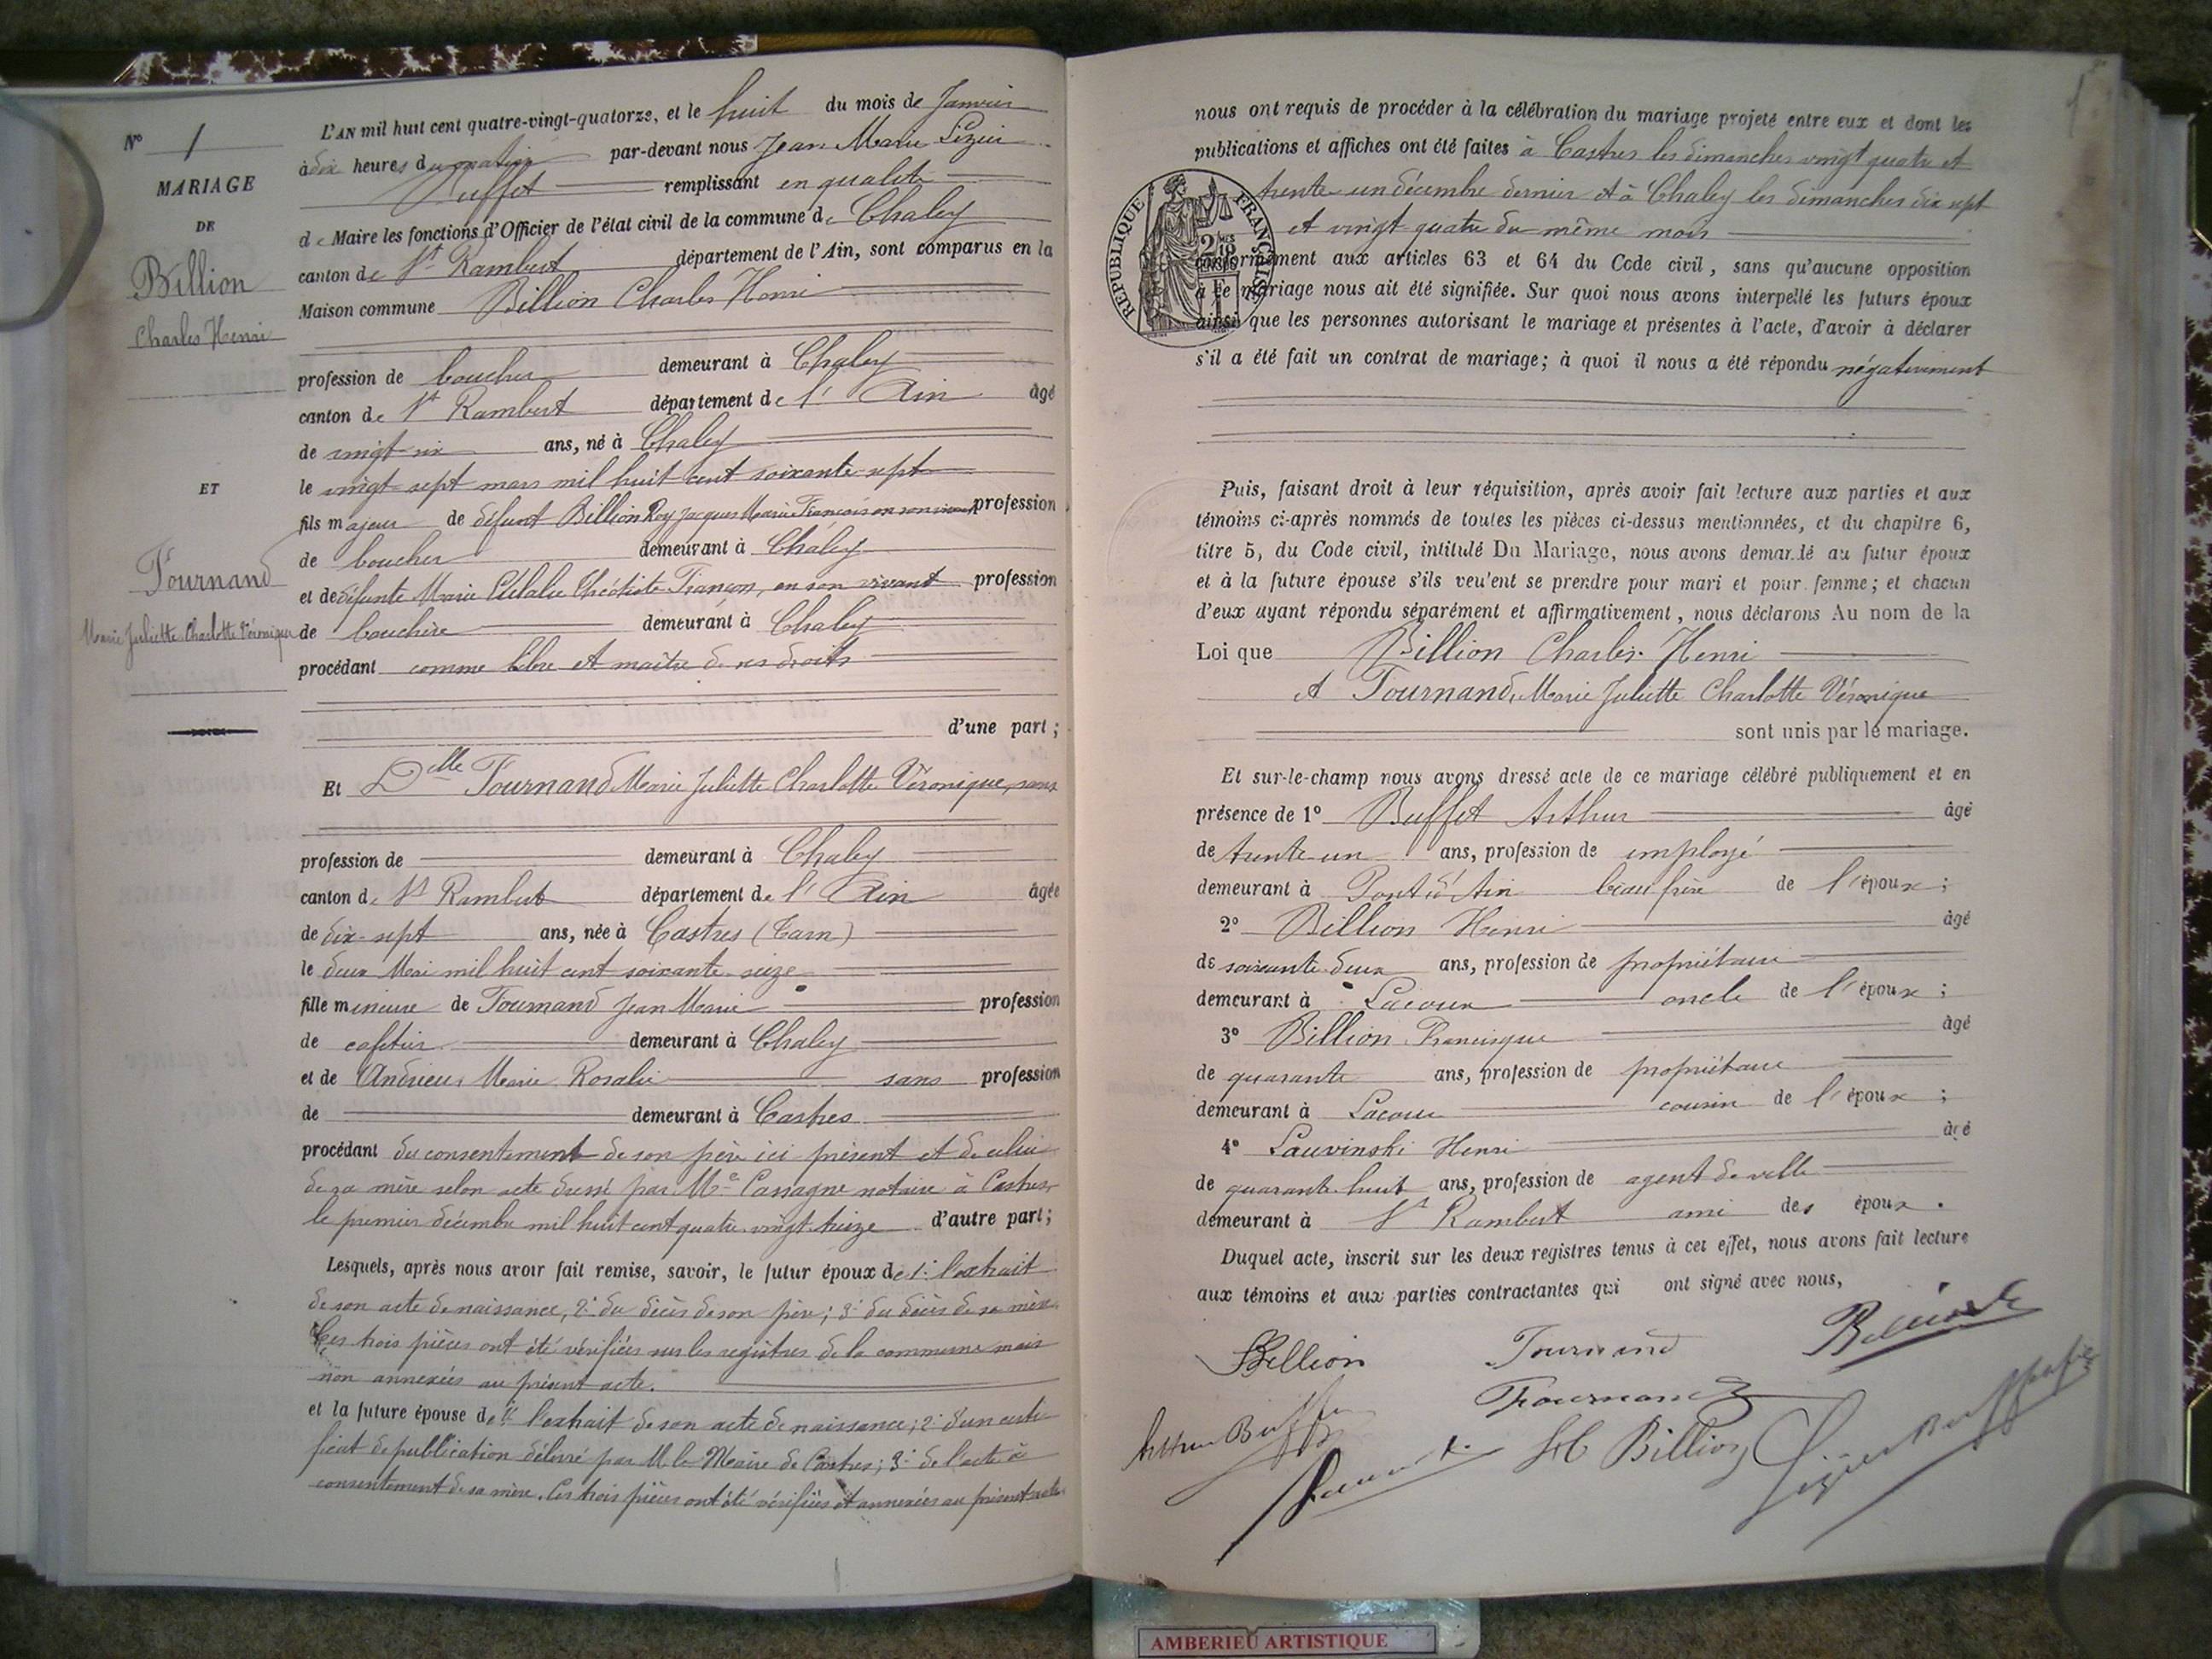 N° 1
MARIAGE
DE
Billion
Charles Henri
ET
Tournand
Marie Juliette Charlotte Véronique
L'AN mil huit cent quatre-vingt-quatorze, et le huit du mois de Janvier
à dix heures du matin par-devant nous Jean Marie Lizier
Buffet remplissant en qualité
de Maire les fonctions d'Officier de l'état civil de la commune de Chaley
canton de St Rambert département de l'Ain, sont comparus en la
Maison commune Billion Charles Henri
profession de boucher demeurant à Chaley
canton de St Rambert département de l'Ain âgé
de vingt-six ans, né à Chaley
le vingt-sept mars mil huit cent soixante-sept
fils majeur de défunt Billion Roy Jacques Marie François en son vivant, profession
de boucher demeurant à Chaley
et de défunte Marie Théotiste Françon, en son vivant profession
de bouchère demeurant à Chaley
procédant comme libre et maître de ses droits
d'une part ;
Et Delle Tournand Marie Juliette Charlotte Véronique, sans
profession de demeurant à Chaley
canton de St Rambert département de l'Ain âgée
de dix-sept ans, née à Castres (Tarn)
le deux Mai mil huit cent soixante-seize
fille mineure de Tournand Jean Marie profession
de cafetier demeurant à Chaley
et de Andrieu, Marie Rosalie sans profession
de demeurant à Castres
procédant du consentement de son père ici présent et de celui
de sa mère selon acte dressé par Me Cassagne notaire à Castres,
le premier décembre mil huit cent quatre-vingt-treize d'autre part ;
Lesquels, après nous avoir fait remise, savoir, le futur époux de 1° l'extrait
de son acte de naissance, 2° du décès de son père ; 3° du décès de sa mère.
Ces trois pièces ont été vérifiées sur les registres de la commune mais
non annexées au présent acte.
et la future épouse de 1° l'extrait de son acte de naissance ; 2° d'un certi-
ficat de publication délivré par M. le Maire de Castres ; 3° de l'acte de
consentement de sa mère. Ces trois pièces ont été vérifiées et annexées au présent acte.
nous ont requis de procéder à la célébration du mariage projeté entre eux et dont les
publications et affiches ont été faites à Castres les dimanches vingt quatre et
trente-un décembre dernier et à Chaley les dimanches dix sept
et vingt-quatre du même mois
RÉPUBLIQUE FRANÇAISE
conformément aux articles 63 et 64 du Code civil, sans qu'aucune opposition
à ce mariage nous ait été signifiée. Sur quoi nous avons interpellé les futurs époux
ainsi que les personnes autorisant le mariage et présentes à l'acte, d'avoir à déclarer
s'il a été fait un contrat de mariage ; à quoi il nous a été répondu négativement
Puis, faisant droit à leur réquisition, après avoir fait lecture aux parties et aux
témoins ci-après nommés de toutes les pièces ci-dessus mentionnées, et du chapitre 6,
titre 5, du Code civil, intitulé Du Mariage, nous avons demandé au futur époux
et à la future épouse s'ils veulent se prendre pour mari et pour femme ; et chacun
d'eux ayant répondu séparément et affirmativement, nous déclarons Au nom de la
Loi que Billion Charles-Henri
et Tournand, Marie Juliette Charlotte Véronique
sont unis par le mariage.
Et sur-le-champ nous avons dressé acte de ce mariage célébré publiquement et en
présence de 1° Buffet Arthur âgé
de trente-un ans, profession de employé
demeurant à Pont d'Ain beau frère de l'époux ;
2° Billion Henri âgé
de soixante-deux ans, profession de propriétaire
demeurant à Lacoux oncle de l'époux ;
3° Billion Francisque âgé
de quarante ans, profession de propriétaire
demeurant à Lacoux cousin de l'époux ;
4° Lauvinski Henri âgé
de quarante-huit ans, profession de agent de ville
demeurant à St Rambert ami des époux.
Duquel acte, inscrit sur les deux registres tenus à cet effet, nous avons fait lecture
aux témoins et aux parties contractantes qui ont signé avec nous,
Billion Tournand
Tournand
Arthur Buffet
H Billion
Lizier Buffet
AMBERIEU ARTISTIQUE